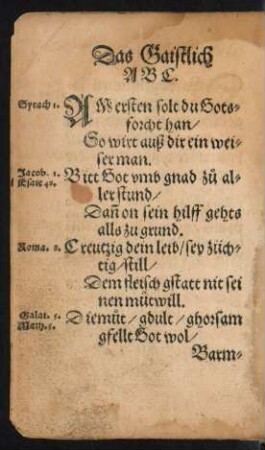 Das Gaistlich
A B C.
Syrach 1. AM ersten solt du Gots-
forcht han/
So wirt auß dir ein wei-
ser man.
Jacob. 1. Bitt Got vmb gnad zů al-
ler stund/
Dañ on sein hilff gehts
alls zu grund.
Roma. 8. Creutzig dein leib/sey züch-
tig/still/
Dem fleisch gstatt nit sei
nen můtwill.
Galat. 5. Diemüt/gdult/ghorsam
Matt. 5. gfellt Got wol/
Barm-